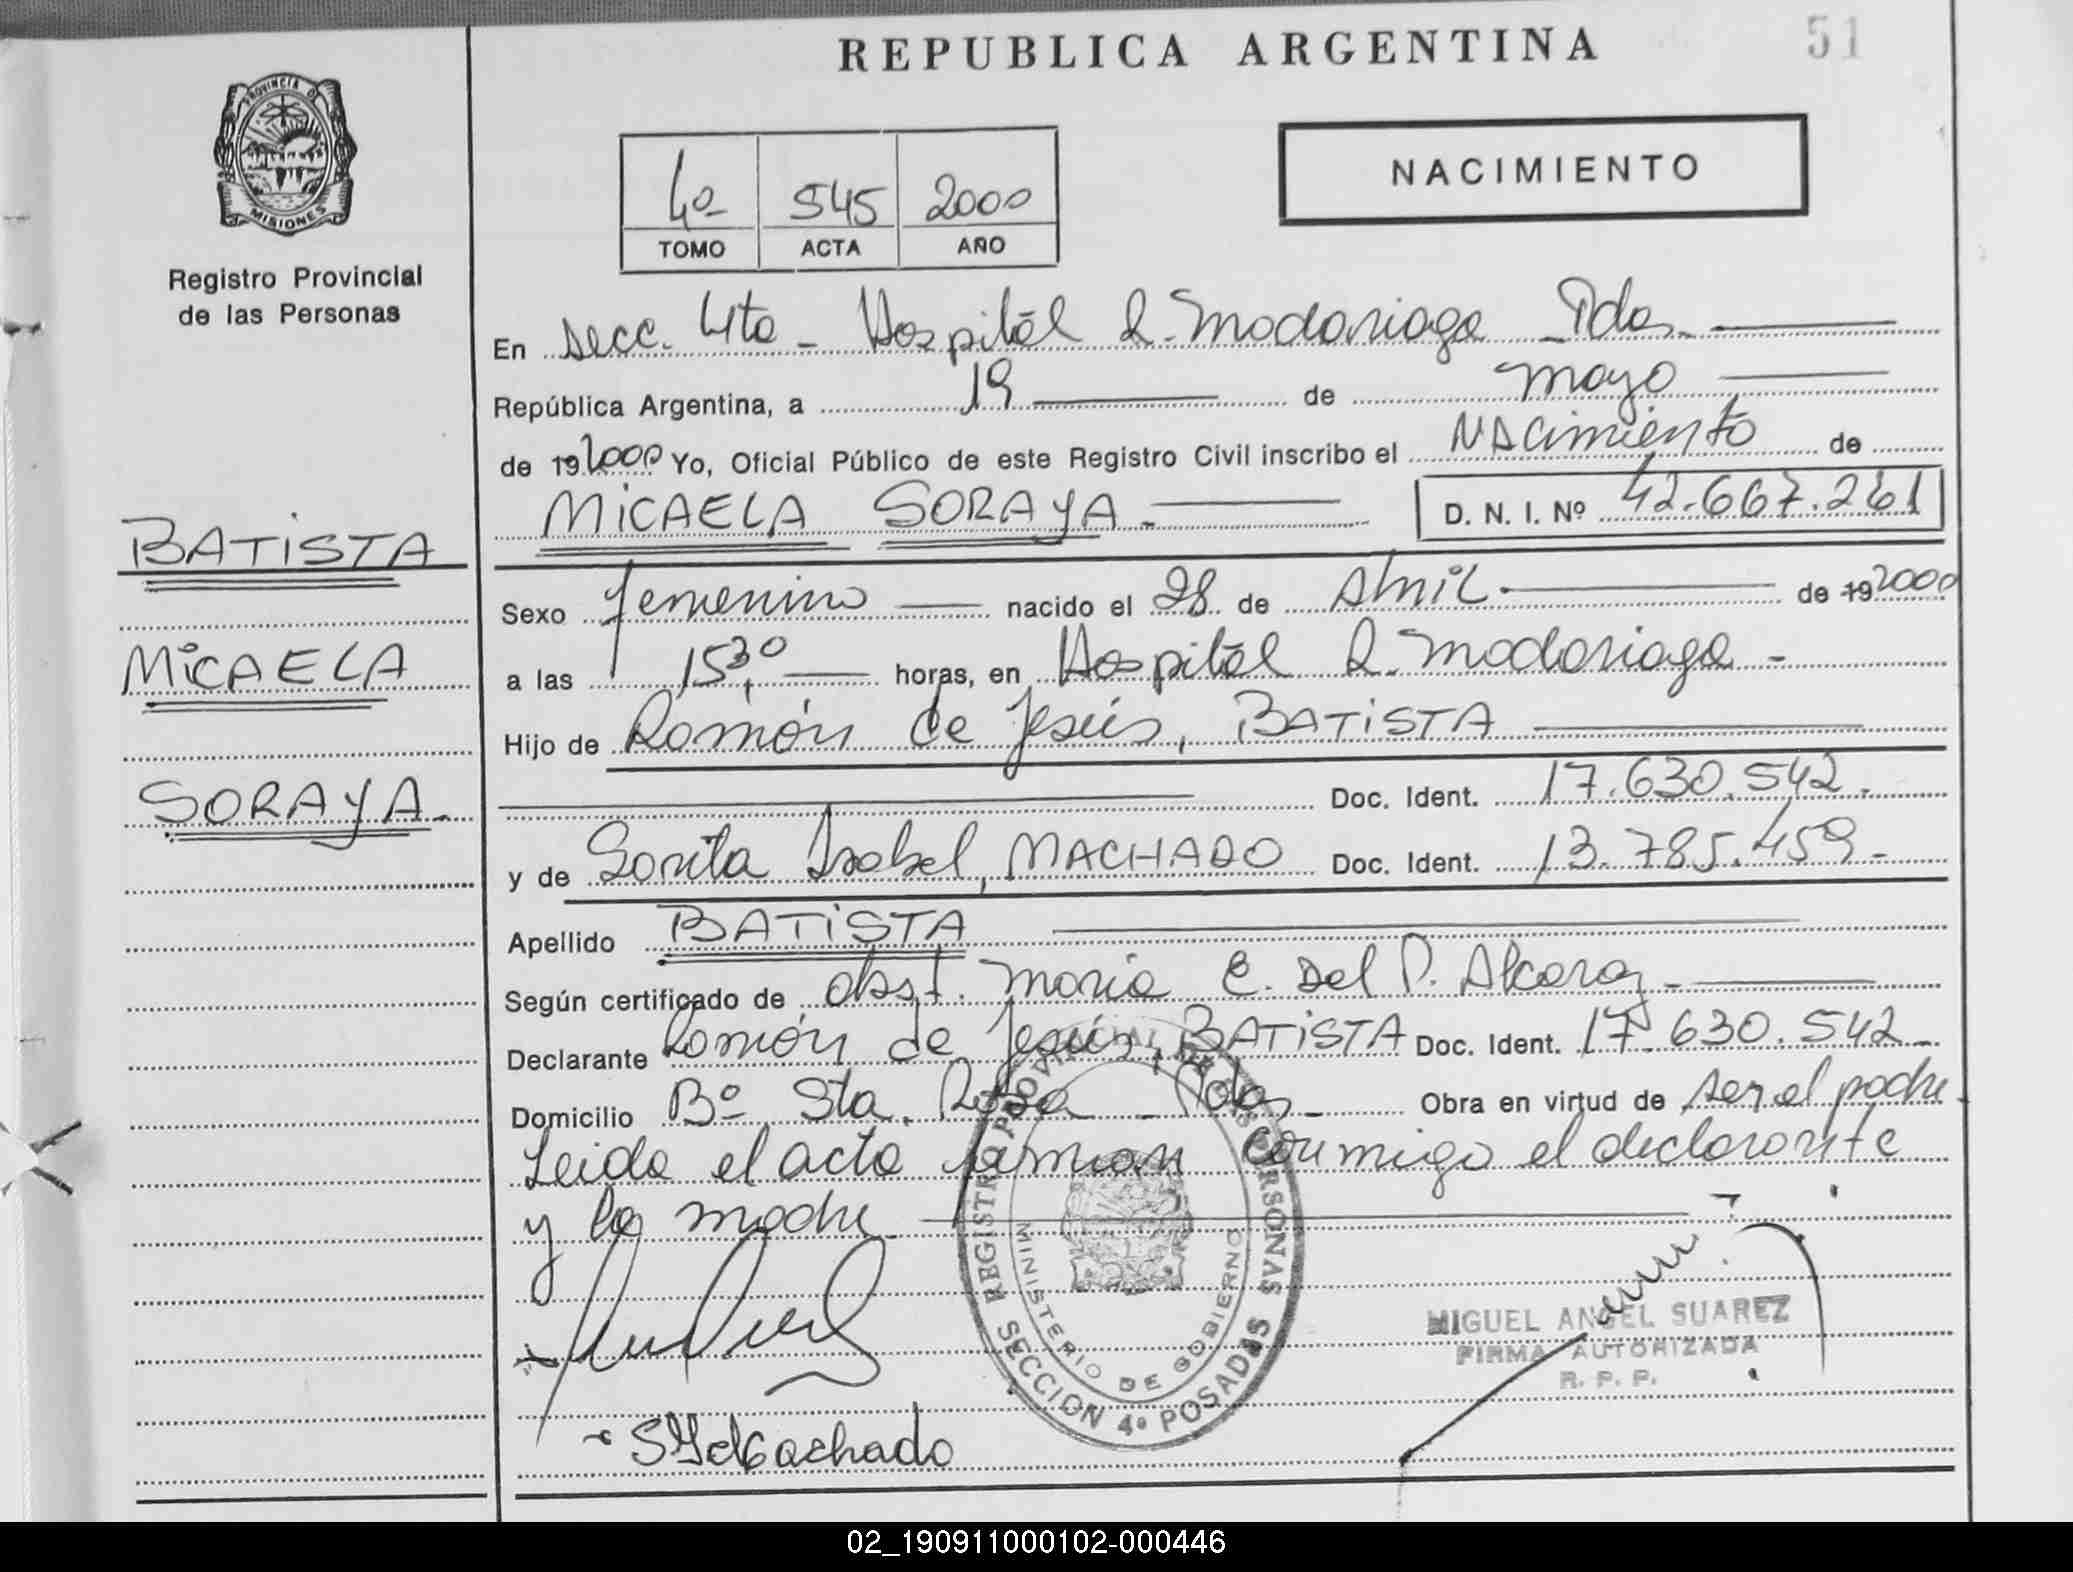 REPUBLICA ARGENTINA
51
PROVINCIA DE
MISIONES
Registro Provincial
de las Personas
4º 545 2000
TOMO ACTA AÑO
NACIMIENTO
En Secc. 4ta - Hospital R. Madariaga - Pdas.
República Argentina, a 19 de mayo
de 19 2000 Yo, Oficial Público de este Registro Civil inscribo el NAcimiento de
MICAELA SORAYA.- D. N. I. Nº 42.667.261
BATISTA
MICAELA
SORAYA.-
Sexo femenino nacido el 28 de Abril.- de 19 2000
a las 15,30 horas, en Hospital R. Madariaga -
Hijo de Ramón de Jesús, BATISTA
Doc. Ident. 17.630.542.
y de Sorita Isabel, MACHADO Doc. Ident. 13.785.459.-
Apellido BATISTA
Según certificado de obst. Maria E. Del P. Alcaraz.-
Declarante Ramón de Jesús, BATISTA Doc. Ident. 17.630.542.-
Domicilio Bº Sta. Rosa - Pdas.- Obra en virtud de ser el padre.
Leida el acta firman conmigo el declarante
y la madre.-
REGISTRO PROVINCIAL DE LAS PERSONAS
MINISTERIO DE GOBIERNO
SECCION 4º POSADAS
MIGUEL ANGEL SUAREZ
FIRMA AUTORIZADA
R. P. P.
02_190911000102-000446